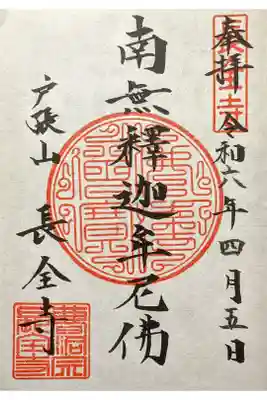 奉拝 令和六年四月五日
南無釋迦牟尼佛
戸張山 長全寺